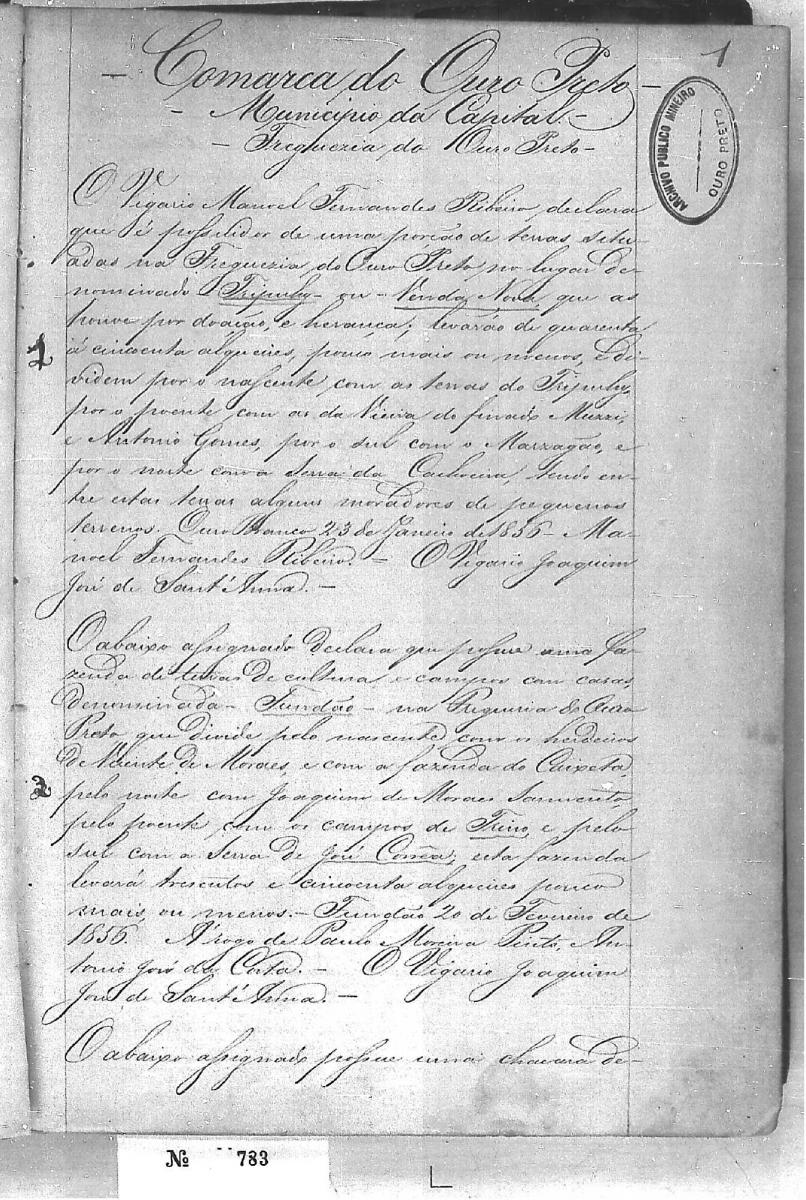 1
- Comarca do Ouro Preto -
- Municipio da Capital. -
- Freguezia do Ouro Preto -
ARCHIVO PUBLICO MINEIRO
OURO PRETO
O Vigario Manoel Fernandes Ribeiro, declara
que é possuidor de uma porção de terras situ-
adas na Freguezia do Ouro Preto no lugar de-
nominado Tripuhy - ou - Venda Nova, que as
houve por doação, e herança; levarão de quarenta
1
á cincoenta alqueires, pouco mais ou menos, e di-
videm por o nascente, com as terras do Tripuhy,
por o poente com as da Vieira do finado Muzzi,
e Antonio Gomes, por o sul com o Marzagão, e
por o norte com a Serra da Cachoeira, tendo en-
tre estas terras alguns moradores de pequenos
terrenos. Ouro Branco 23 de Janeiro de 1856 - Ma-
noel Fernandes Ribeiro. - O Vigario Joaquim
José de Sant'Anna. -
O abaixo assignado declara que possue uma fa-
zenda de terras de cultura, e campos com casas,
denominada - Fundão - na Freguezia do Ouro
Preto que divide pelo nascente com os herdeiros
de Vicente de Moraes, e com a fazenda do Caixeta,
2
pelo norte com Joaquim de Moraes Sarmento,
pelo poente com os campos de Trino, e pelo
sul com a Serra de José Corrêa; esta fazenda
levará tresentos e cincoenta alqueires pouco
mais, ou menos. - Fundão 20 de Fevereiro de
1856. A rogo de Paulo Moreira An-
tonio José da Costa. - O Vigario Joaquim
José de Sant'Anna. -
O abaixo assignado possue uma chacara de-
Nº 783